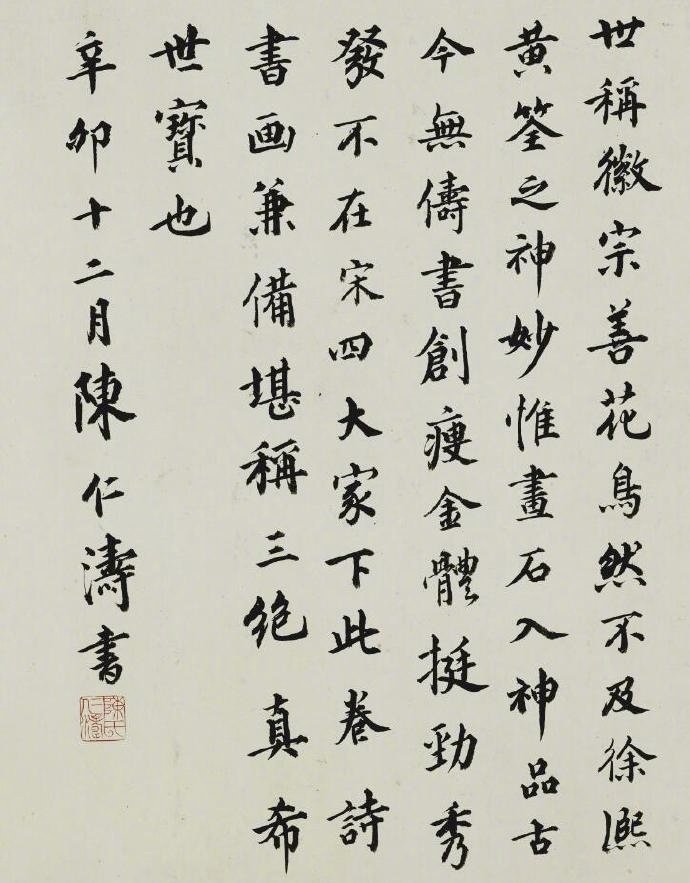 世稱徽宗善花鳥然不及徐熙
黃筌之神妙惟畫石入神品古
今無儔書創瘦金體挺勁秀
發不在宋四大家下此卷詩
書画兼備堪稱三絕真希
世寶也
辛卯十二月陳仁濤書
陳氏
仁濤